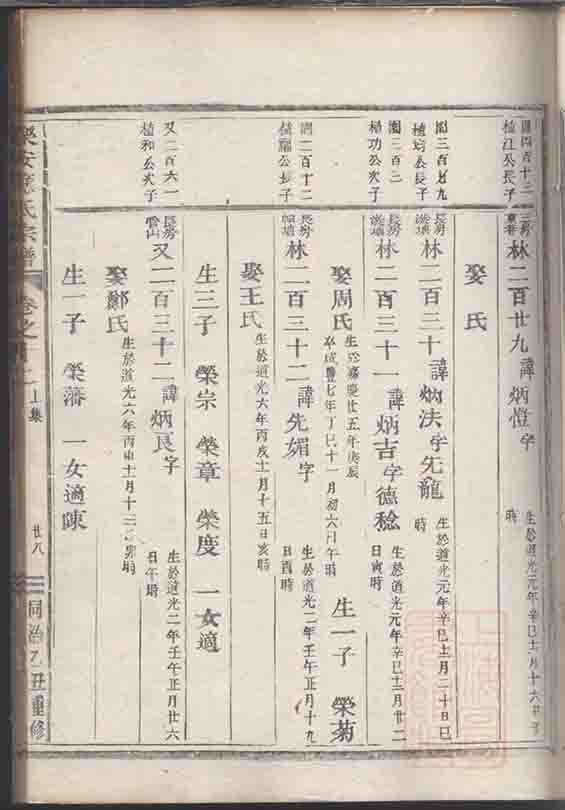 林二百廿九 諱炳愷字
生於道光元年辛巳十一月十六日子時
娶 氏
圍三百廿九
植均公長子
長房
林二百三十 諱炳法字先龍
生於道光元年辛巳十二月二十日巳時
圍三百三
植功公次子
長房
林二百三十一 諱炳吉字德稔
生於道光元年辛巳十二月廿二日寅時
娶周氏
生於嘉慶廿五年庚辰
卒咸豐七年丁巳十一月初六日午時
生一子 榮菊
圍二百十二
公長子
長房
林二百三十二 諱先媚字
生於道光二年壬午正月十九日酉時
娶王氏
生於道光六年丙戌十月十五日亥時
生三子 榮宗 榮章 榮度 一女適
又二百六一
植和公次子
長房
管山
又二百三十二 諱炳良字
生於道光二年壬午正月廿六日午時
娶鄭氏
生於道光六年丙申十月十三日卯時
生一子 榮藩 一女適陳
樂安孫氏宗譜
卷之
上集
廿八
同治乙丑重修